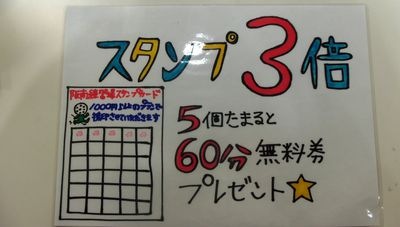 スタンプ3倍
阪南練習場スタンプカード
1000円以上のプランで
捺印させていただきます
5個たまると
60分無料券
プレゼント☆